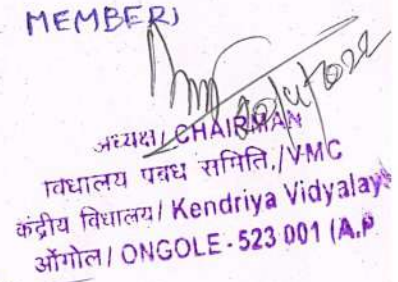 MEMBER)
अध्यक्ष/ CHAIRMAN
विधालय पबध समिति./VMC
केंद्रीय विधालय/ Kendriya Vidyalay
ओंगोल / ONGOLE - 523 001 (A.P